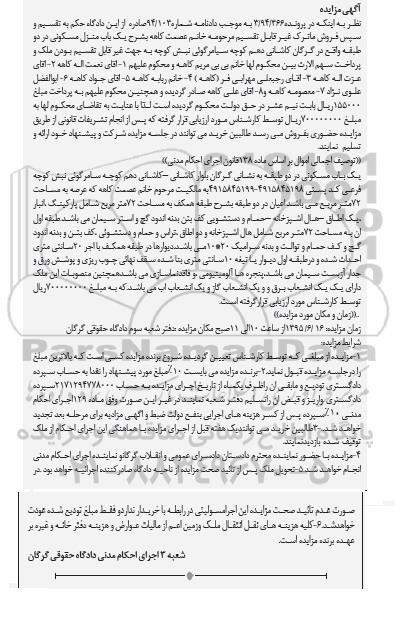 آگهی مزایده
نظر به اینکه در پرونده ۳/۹۴/۳۶۶ به موجب دادنامه شماره ۹۴/۱۰۳ صادره از این دادگاه حکم به تقسیم و
سپس فروش ماترک غیر قابل تقسیم مرحومه خانم عصمت کاهه بشرح یک باب منزل مسکونی در دو
طبقه واقع در گرگان کاشانی دهم کوچه سیامرگوئی نبش کوچه به جهت غیر قابل تقسیم بودن ملک و
پرداخت سهم الارث بین محکوم لها خانم بی بی مریم کاهه و محکوم علیهم ۱-اقای نعمت اله کاهه ۲-اقای
عزت اله کاهه ۳-اقای رجبعلی مهرابی فر (کاهه) ۴-خانم ربابه کاهه ۵-اقای جواد کاهه ۶-ابوالفضل
علوی نژاد ۷-معصومه کاهه و۸-اقای علی کاهه صادر گردیده و همچنین محکوم علیهم به پرداخت مبلغ
۱۵۵۰۰۰ ریال بابت نیم عشر در حق دولت محکوم گردیده است لذا با عنایت به تقاضای محکوم لها به
مبلغ ۷۰۰۰۰۰۰۰۰ ریال توسط کارشناس مورد ارزیابی قرار گرفته که پس از انجام تشریفات قانونی از طریق
مزایده حضوری بفروش می رسد طالبین خرید می توانند در جلسه مزایده شرکت و پیشنهاد خود ارائه و
تسلیم نمایند.
((توصیف اجمالی اموال بر اساس ماده ۱۳۸ قانون اجرای احکام مدنی))
یک باب مسکونی در دو طبقه به نشانی گرگان بلوار کاشانی –کاشانی دهم کوچه سیامرگوئی نبش کوچه
فرعی کد پستی ۴۹۱۵۸۴۵۱۹۸-۴۹۱۵۸۴۵۱۹۹ به مالکیت مرحوم خانم عصمت کاهه که عرصه به مساحت
۷۲متر مربع می باشد اعیان در دو طبقه بشرح طبقه همکف به مساحت ۷۲متر مربع شامل پارکینگ ،انبار
،یک اطاق –هال اشپزخانه –حمام و دستشویی کف بتن بدنه اندود گچ و استر سیمان می باشد.طبقه اول
آن به مساحت ۷۲متر مربع شامل هال اشپزخانه و دو اطاق ،تراس و حمام و دستشوئی ،کف بتن و بدنه اندود
گچ و کف حمام و توالت و بدنه سرامیک ۲۰*۱۰می باشد.دیوارها در طبقه همکف با اجر ۲۰سانتی متری
احداث شده و در طبقه اول دیوار با تیغه ۱۰سانتی متری بنا شده سقف نهائی چوب ریزی و پوشش ورق و
جدار آزبست سیمان می باشد.پنجره ها آلومینیومی و فاقد نماسازی می باشد.همچنین منصوبات این ملک
دارای یک یک انشعاب برق و یک انشعاب گاز و یک انشعاب اب می باشد.که به مبلغ ۷۰۰۰۰۰۰۰۰ ریال
توسط کارشناس مورد ارزیابی قرار گرفته است.
((زمان و مکان مورد مزایده))
زمان مزایده: ۱۶ /۶/ ۱۳۹۵ از ساعت ۱۰ الی ۱۱ صبح مکان مزایده :دفتر شعبه سوم دادگاه حقوقی گرگان
شرایط مزایده:
۱-مزایده از مبلغی که توسط کارشناس تعیین گردیده شروع برنده مزایده کسی است که بالاترین مبلغ
را در جلسه مزایده قبول نماید.۲-برنده مزایده می بایست ۱۰٪ مبلغ مورد پیشنهاد را نقدا به حساب سپرده
دادگستری تودیع و مابقی ان را ظرف یکماه از تاریخ اجرای مزایده به حساب ۲۱۷۱۲۹۴۷۷۸۰۰۰ سپرده
دادگستری واریز و قبض ان را تسلیم دفتر شعبه نمایند در غیر این صورت وفق ماده ۱۲۹ اجرای احکام
مدنی ۱۰٪ سپرده پس از کسر هزینه های اجرایی بنفع دولت ضبط و اگهی مزایده برای مرحله بعد تجدید
خواهد شد.۳-طالبین خرید می توانند یک هفته قبل از اجرای مزایده با هماهنگی این اجرای احکام از ملک
توقیف شده بازدید نمایند.
۴-مزایده با حضور نماینده محترم دادستان دادسرای عمومی و انقلاب گرگان و نماینده اجرای احکام مدنی
انجام خواهد شد.۵-تحویل ملک پس از تائید صحت مزایده از ناحیه دادگاه صادر کننده اجرائیه خواهد بود .در
صورت عدم تائید صحت مزایده این اجرا مسولیتی در رابطه با خریدار ندارد و فقط مبلغ تودیع شده عودت
خواهد شد.۶-کلیه هزینه های نقل انتقال ملک و زمین اعم از مالیات عوارض و هزینه دفتر خانه و غیره بر
عهده برنده مزایده است.
شعبه ۳ اجرای احکام مدنی دادگاه حقوقی گرگان